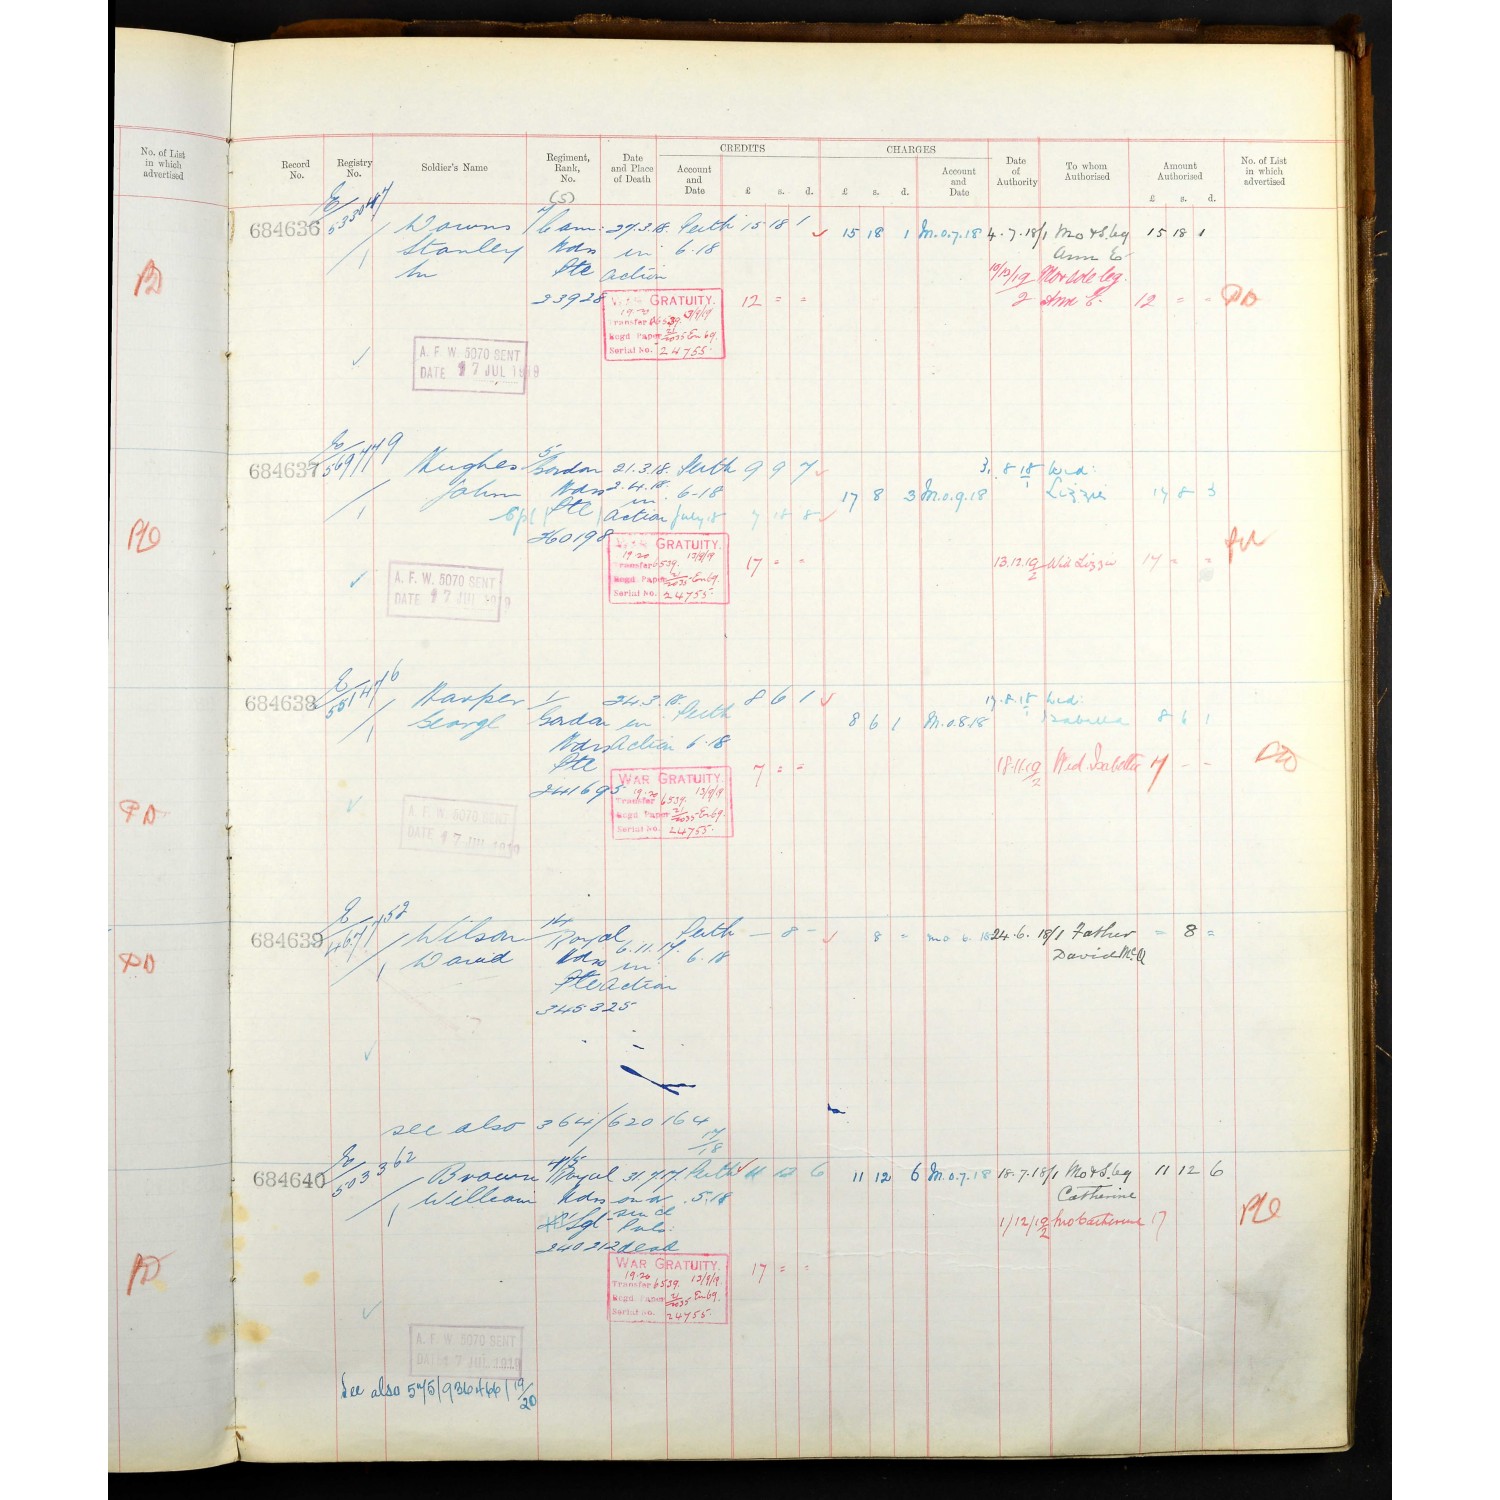 No. of List
in which
advertised
PD
PD
PD
PD
PD
CREDITS
CHARGES
Record
No.
Registry
No.
Soldier's Name
Regiment,
Rank,
No.
Date
and Place
of Death
Account
and
Date
£ s. d.
£ s. d.
Account
and
Date
Date
of
Authority
To whom
Authorised
Amount
Authorised
£ s. d.
No. of List
in which
advertised
(5)
684636
E/533047/1
Downs
Stanley
7/Cam:
Hdrs
Pte
33928
27.3.18.
in
action
Perth
6.18
15 18 1
15 18 1
M.o.7.18
4.7.18/1
Mo & S. leg
Ann E
15 18 1
10/12/19/2
Mo & sole leg.
Ann E.
12 = =
PD
WAR GRATUITY.
19.20 13/9/19
Transfer 6539.
Regd Paper 21/2035 En 69.
Serial No. 24755.
12 = =
A. F. W. 5070 SENT
DATE 17 JUL 1919
684637
E/569779/1
Hughes
John
5/Gordon
Hdrs
Pte
260198
21.3.18.
2.4.18.
in
action
Perth
6-18
9 9 7
July 18
7 18 8
17 8 3
M.o.9.18
3.8.18/1
Wid:
Lizzie
17 8 3
WAR GRATUITY.
19.20 13/9/19
Transfer 6539.
Regd Paper 21/2035 En 69.
Serial No. 24755.
17 = =
13.12.19/2
Wid Lizzie
17 = =
A. F. W. 5070 SENT
DATE 17 JUL 1919
684638
E/551476/1
Harper
George
1/
Gordon
Hdrs
Pte
241695
24.3.18.
in
Action
Perth
6.18
8 6 1
8 6 1
M.o.8.18
17.8.18/1
Wid:
Isabella
8 6 1
WAR GRATUITY.
19.20 13/9/19
Transfer 6539.
Regd Paper 21/2035 En 69.
Serial No. 24755.
7 = =
18.11.19/2
Wid. Isabella
7 - -
PD
A. F. W. 5070 SENT
DATE 17 JUL 1919
684639
E/467752/1
Wilson
David
14
Royal
Hdrs
Pte
345325
6.11.17.
in
Action
Perth
6.18
— 8 —
8 =
mo 6.18
24.6.18/1
Father
David McA
= 8 =
see also 364/620164
17/18
684640
E/503362/1
Brown
William
4/5
Royal
Hdrs
Sgt
240212
31.7.17.
on or
since
Pres:
dead
Perth
5.18
11 12 6
11 12 6
M.o.7.18
18.7.18/1
Mo & S. leg
Catherine
11 12 6
1/12/19/2
Mo Catherine
17
PD
WAR GRATUITY.
19.20 13/9/19.
Transfer 6539.
Regd Paper 21/2035 En 69.
Serial No. 24755.
17 = =
A. F. W. 5070 SENT
DATE 17 JUL 1919
See also 575/936466/19/20